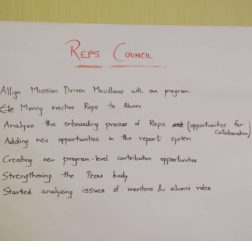 REPS COUNCIL
Allign Mission Driven Mozillians with our program
Moving inactive Reps to Alumni
Analyze the onboarding process of Reps (opportunities for
collaboration)
Adding new opportunities in the report system
Creating new program-level contribution opportunities
Strengthening the Peers body
Started analyzing issues of mentors & alumni roles